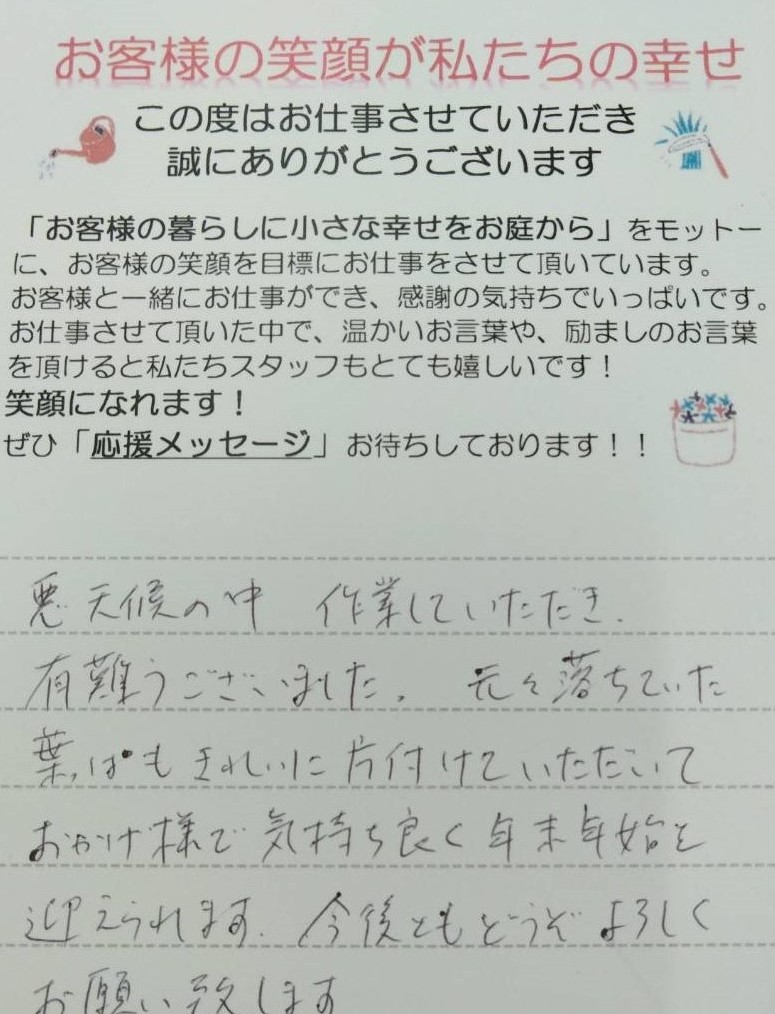 お客様の笑顔が私たちの幸せ
この度はお仕事させていただき
誠にありがとうございます
「お客様の暮らしに小さな幸せをお庭から」をモットー
に、お客様の笑顔を目標にお仕事をさせて頂いています。
お客様と一緒にお仕事ができ、感謝の気持ちでいっぱいです。
お仕事させて頂いた中で、温かいお言葉や、励ましのお言葉
を頂けると私たちスタッフもとても嬉しいです！
笑顔になれます！
ぜひ「応援メッセージ」お待ちしております！！
悪天候の中　作業していただき、
有難うございました。　元々落ちていた
葉っぱもきれいに片付けていただいて
おかげ様で気持ち良く年末年始を
迎えられます。今後ともどうぞよろしく
お願い致します